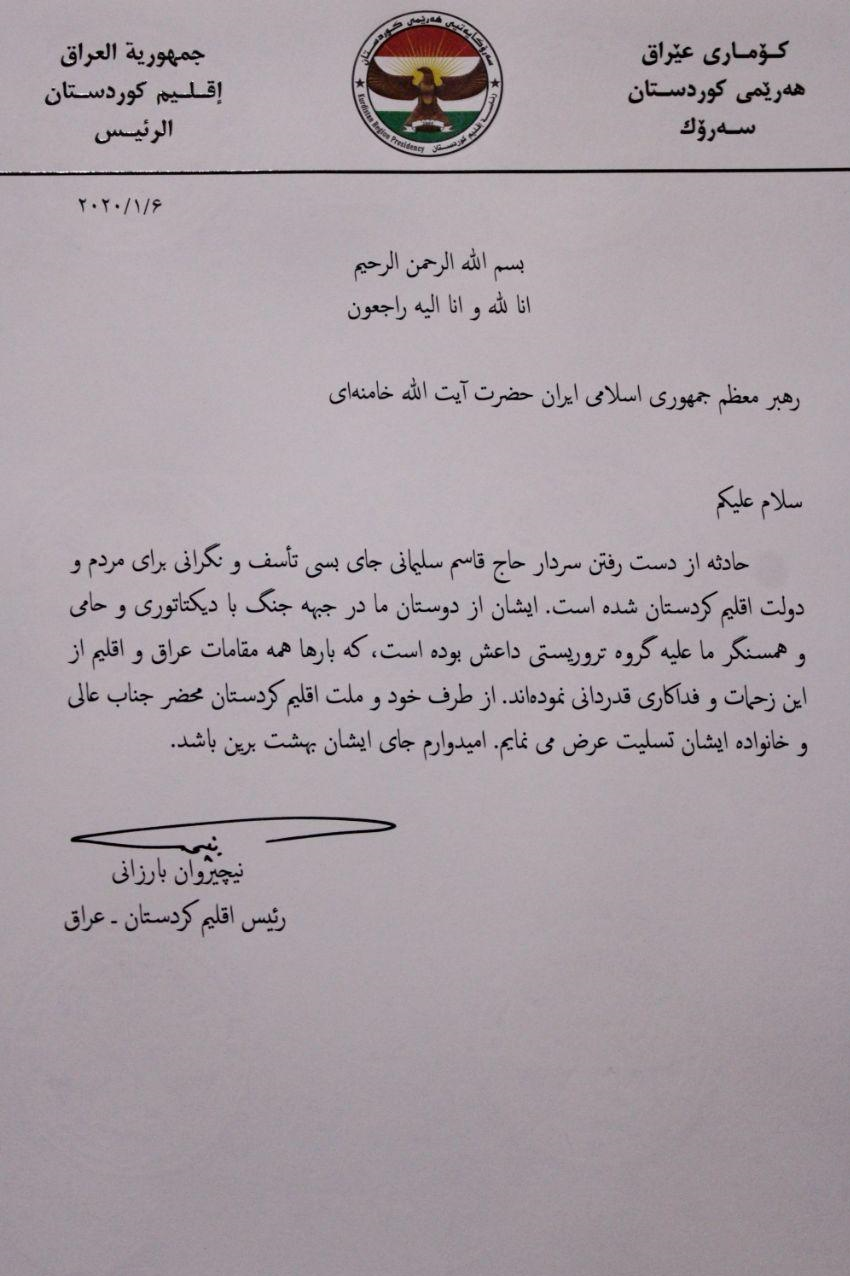 كـۆمـارى عێراق
هەرێمى كوردسـتان
سـەرۆك
جمهورية العراق
إقـلـيـم كوردسـتان
الرئيـس
سەرۆكايەتیی هەرێمی كوردستان
رئاسة إقليم كوردستان
Kurdistan Region Presidency
٢٠٢٠/١/۶
بسم الله الرحمن الرحیم
انا لله و انا الیه راجعون
رهبر معظم جمهوری اسلامی ایران حضرت آیت الله خامنه‌ای
سلام علیکم
حادثه از دست رفتن سردار حاج قاسم سلیمانی جای بسی تأسف و نگرانی برای مردم و
دولت اقلیم کردستان شده است. ایشان از دوستان ما در جبهه جنگ با دیکتاتوری و حامی
و همسنگر ما علیه گروه تروریستی داعش بوده است، که بارها همه مقامات عراق و اقلیم از
این زحمات و فداکاری قدردانی نموده‌اند. از طرف خود و ملت اقلیم کردستان محضر جناب عالی
و خانواده ایشان تسلیت عرض می نمایم. امیدوارم جای ایشان بهشت برین باشد.
نیچیروان بارزانی
رئیس اقلیم کردستان ـ عراق